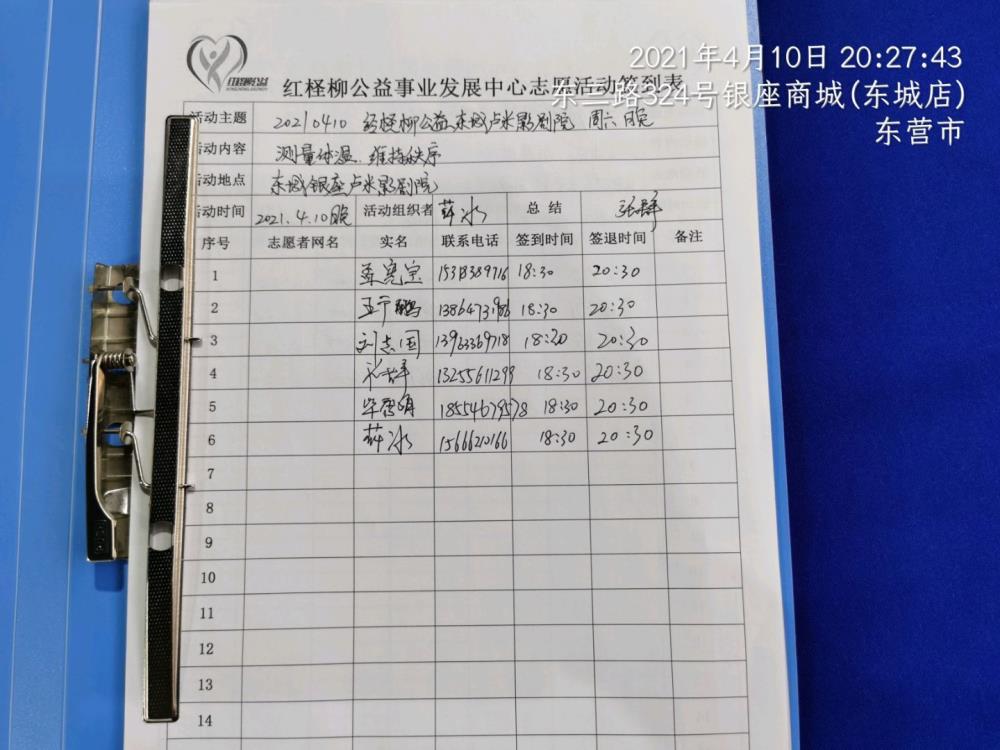 2021年4月10日 20:27:43
东三路324号银座商城(东城店)
东营市
红柽柳公益
红柽柳公益事业发展中心志愿活动签到表
活动主题 20210410 红柽柳公益东城卢米影剧院 周六晚
活动内容 测量体温、维持秩序
活动地点 东城银座卢米影剧院
活动时间 2021.4.10晚 活动组织者 薛冰 总结 张群
序号 志愿者网名 实名 联系电话 签到时间 签退时间 备注
1 孟宪宝 15318389716 18:30 20:30
2 18:30 20:30
3 刘志国 13963369718 18:30 20:30
4 13255611299 18:30 20:30
5 18554679578 18:30 20:30
6 薛冰 15666210166 18:30 20:30
7
8
9
10
11
12
13
14